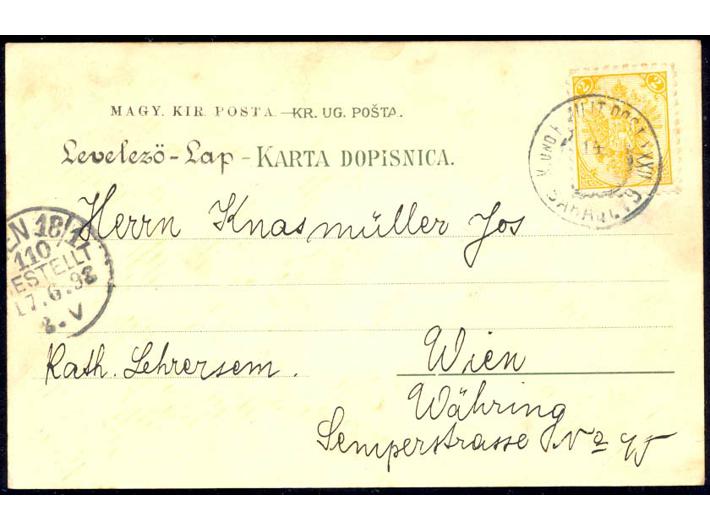 MAGY. KIR. POSTA. — KR. UG. POŠTA.
Levelező-Lap - KARTA DOPISNICA.
2 2
K. UND K. MILIT. POST XXXII
14
WIEN 18/1
110
BESTELLT
17.6.98
8.V
Herrn Knasmüller Jos
Kath. Lehrersem.
Wien
Währing
Semperstrasse No 45